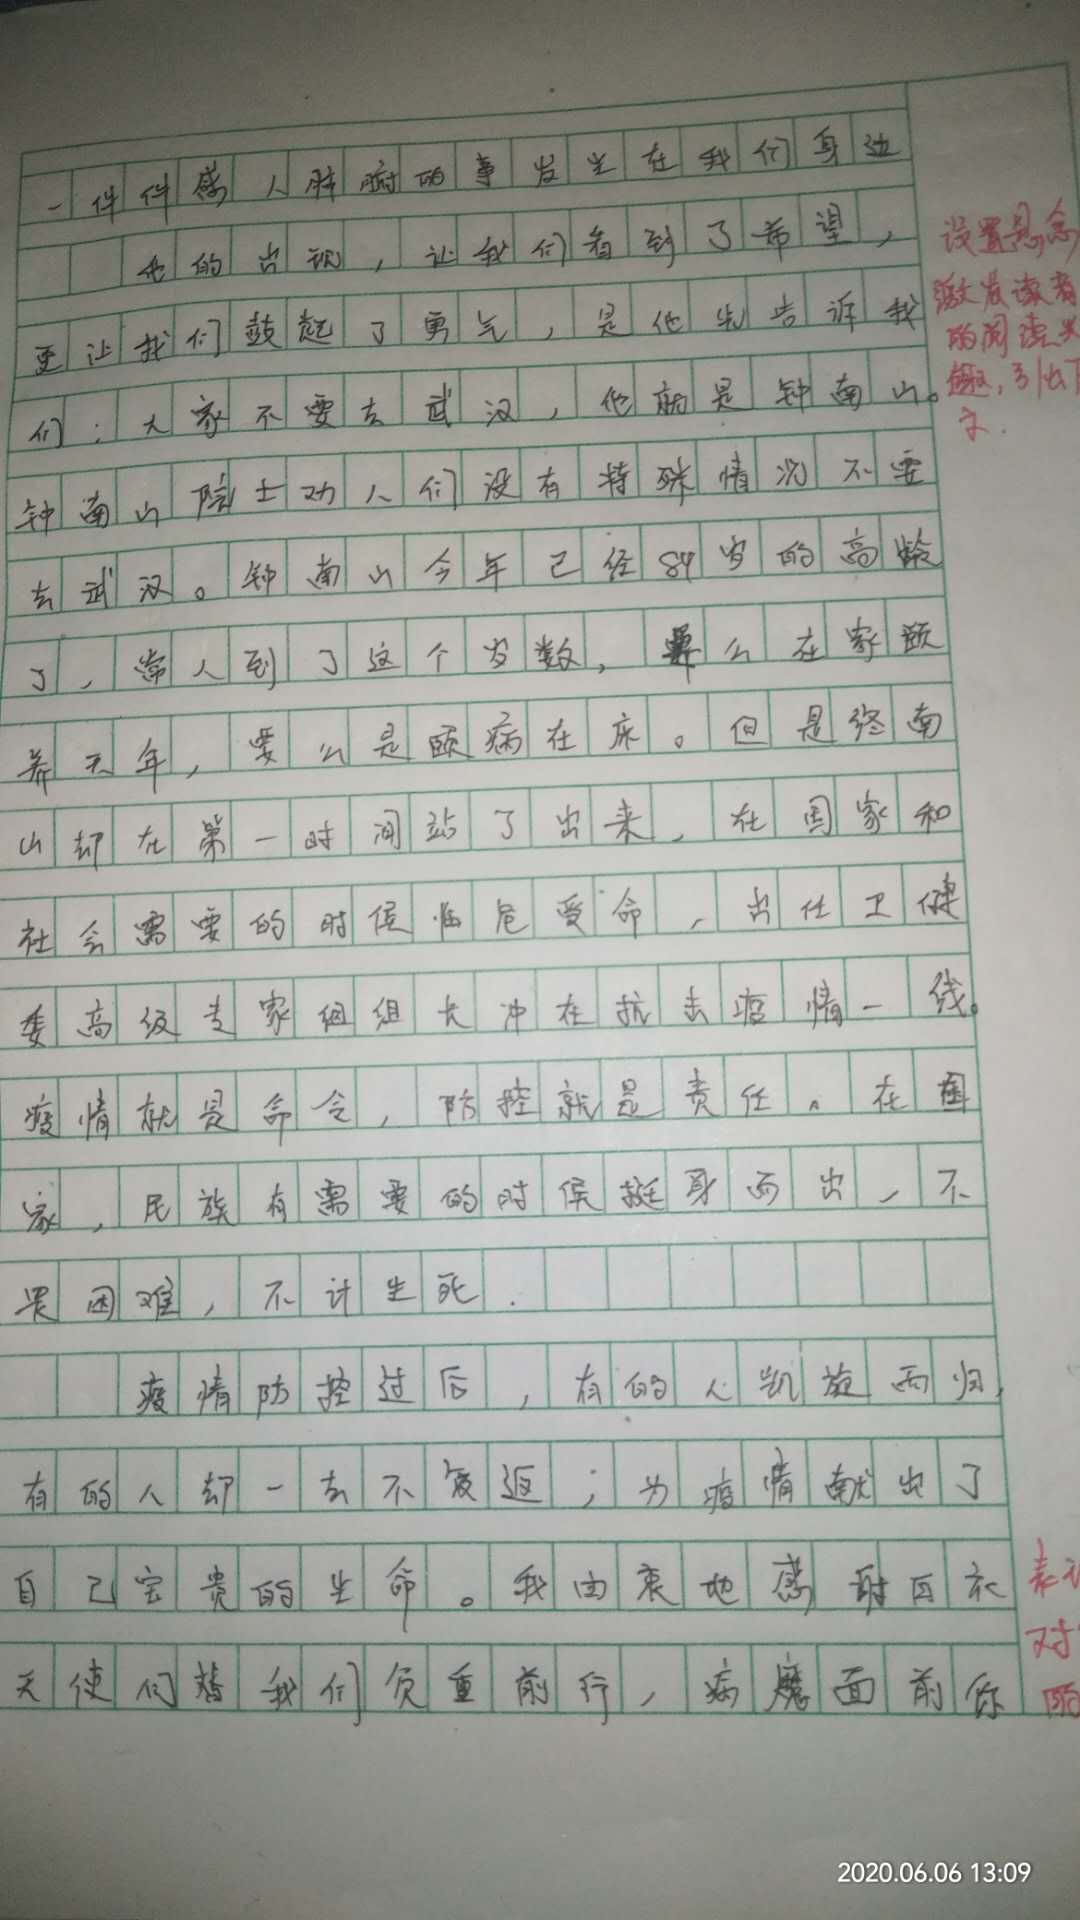 一件件感人肺腑的事发生在我们身边
他的出现，让我们看到了希望，
更让我们鼓起了勇气，是他先告诉我
们：大家不要去武汉，他就是钟南山。
钟南山院士劝人们没有特殊情况不要
去武汉。钟南山今年已经84岁的高龄
了，常人到了这个岁数，要么在家颐
养天年，要么是颐病在床。但是终南
山却在第一时间站了出来，在国家和
社会需要的时候临危受命，出任卫健
委高级专家组组长冲在抗击疫情一线。
疫情就是命令，防控就是责任。在国
家，民族有需要的时候挺身而出，不
畏困难，不计生死.
疫情防控过后，有的人凯旋而归，
有的人却一去不复返；为疫情献出了
自己宝贵的生命。我由衷地感谢白衣
天使们替我们负重前行，病魔面前你
设置悬念
激发读者
的阅读兴
趣，引出下
文.
表
对
陌
2020.06.06 13:09